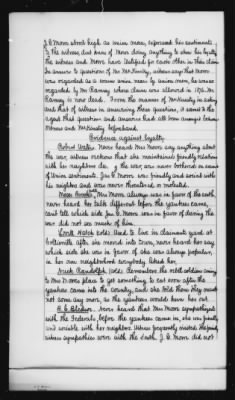 J. E. Moon about high as union man, expressed her sentiments.
The witness didn't know of Moon doing anything to show his loyalty.
The witness and Moon have testified for each other in their claims
In answer to question of Mr McKinley, witness says that moon
was regarded as a union man by union men, he was so
regarded by Mr Ramsey whose claim was allowed in 1874. Mr
Ramsey is now dead. From the manner of McKinley in asking
and that of witness in answering these question, it seemed to the
agent that question and answers had all been arranged between
witness and McKinley beforehand.
Evidence against loyalty
never heard Mrs Moon say anything about
the war, witness reckons that she maintained friendly relation
with her neighbors &c. if the war are never bothered on account
of Union sentiments. Jas E Moon was friendly and social with
his neighbor and was never threatened or molested.
Mrs Moon always was in favor of the south
never heard her talk different before the yankees came,
cant tell which side Jas E. Moon was in favor of during the
war did not see much of him.
Used to live in claimants yard at
Courtlandville after she moved into town, never heard her say
which side she was in favor of she was always popular,
in her own neighborhood everybody liked her.
Randolph (col) Remembers the rebel soldiers coming
to Mrs Moons place to get something to eat soon after the
yankees came into the country, and she told them they must
not come any more, as the yankees would burn her out.
never heard that Mrs Moon sympathized
with the Federals, before the yankees came in, she was friendly
and sociable with her neighbors. Witness frequently visited the family,
witness sympathies were with the South. J. E. Moon did not